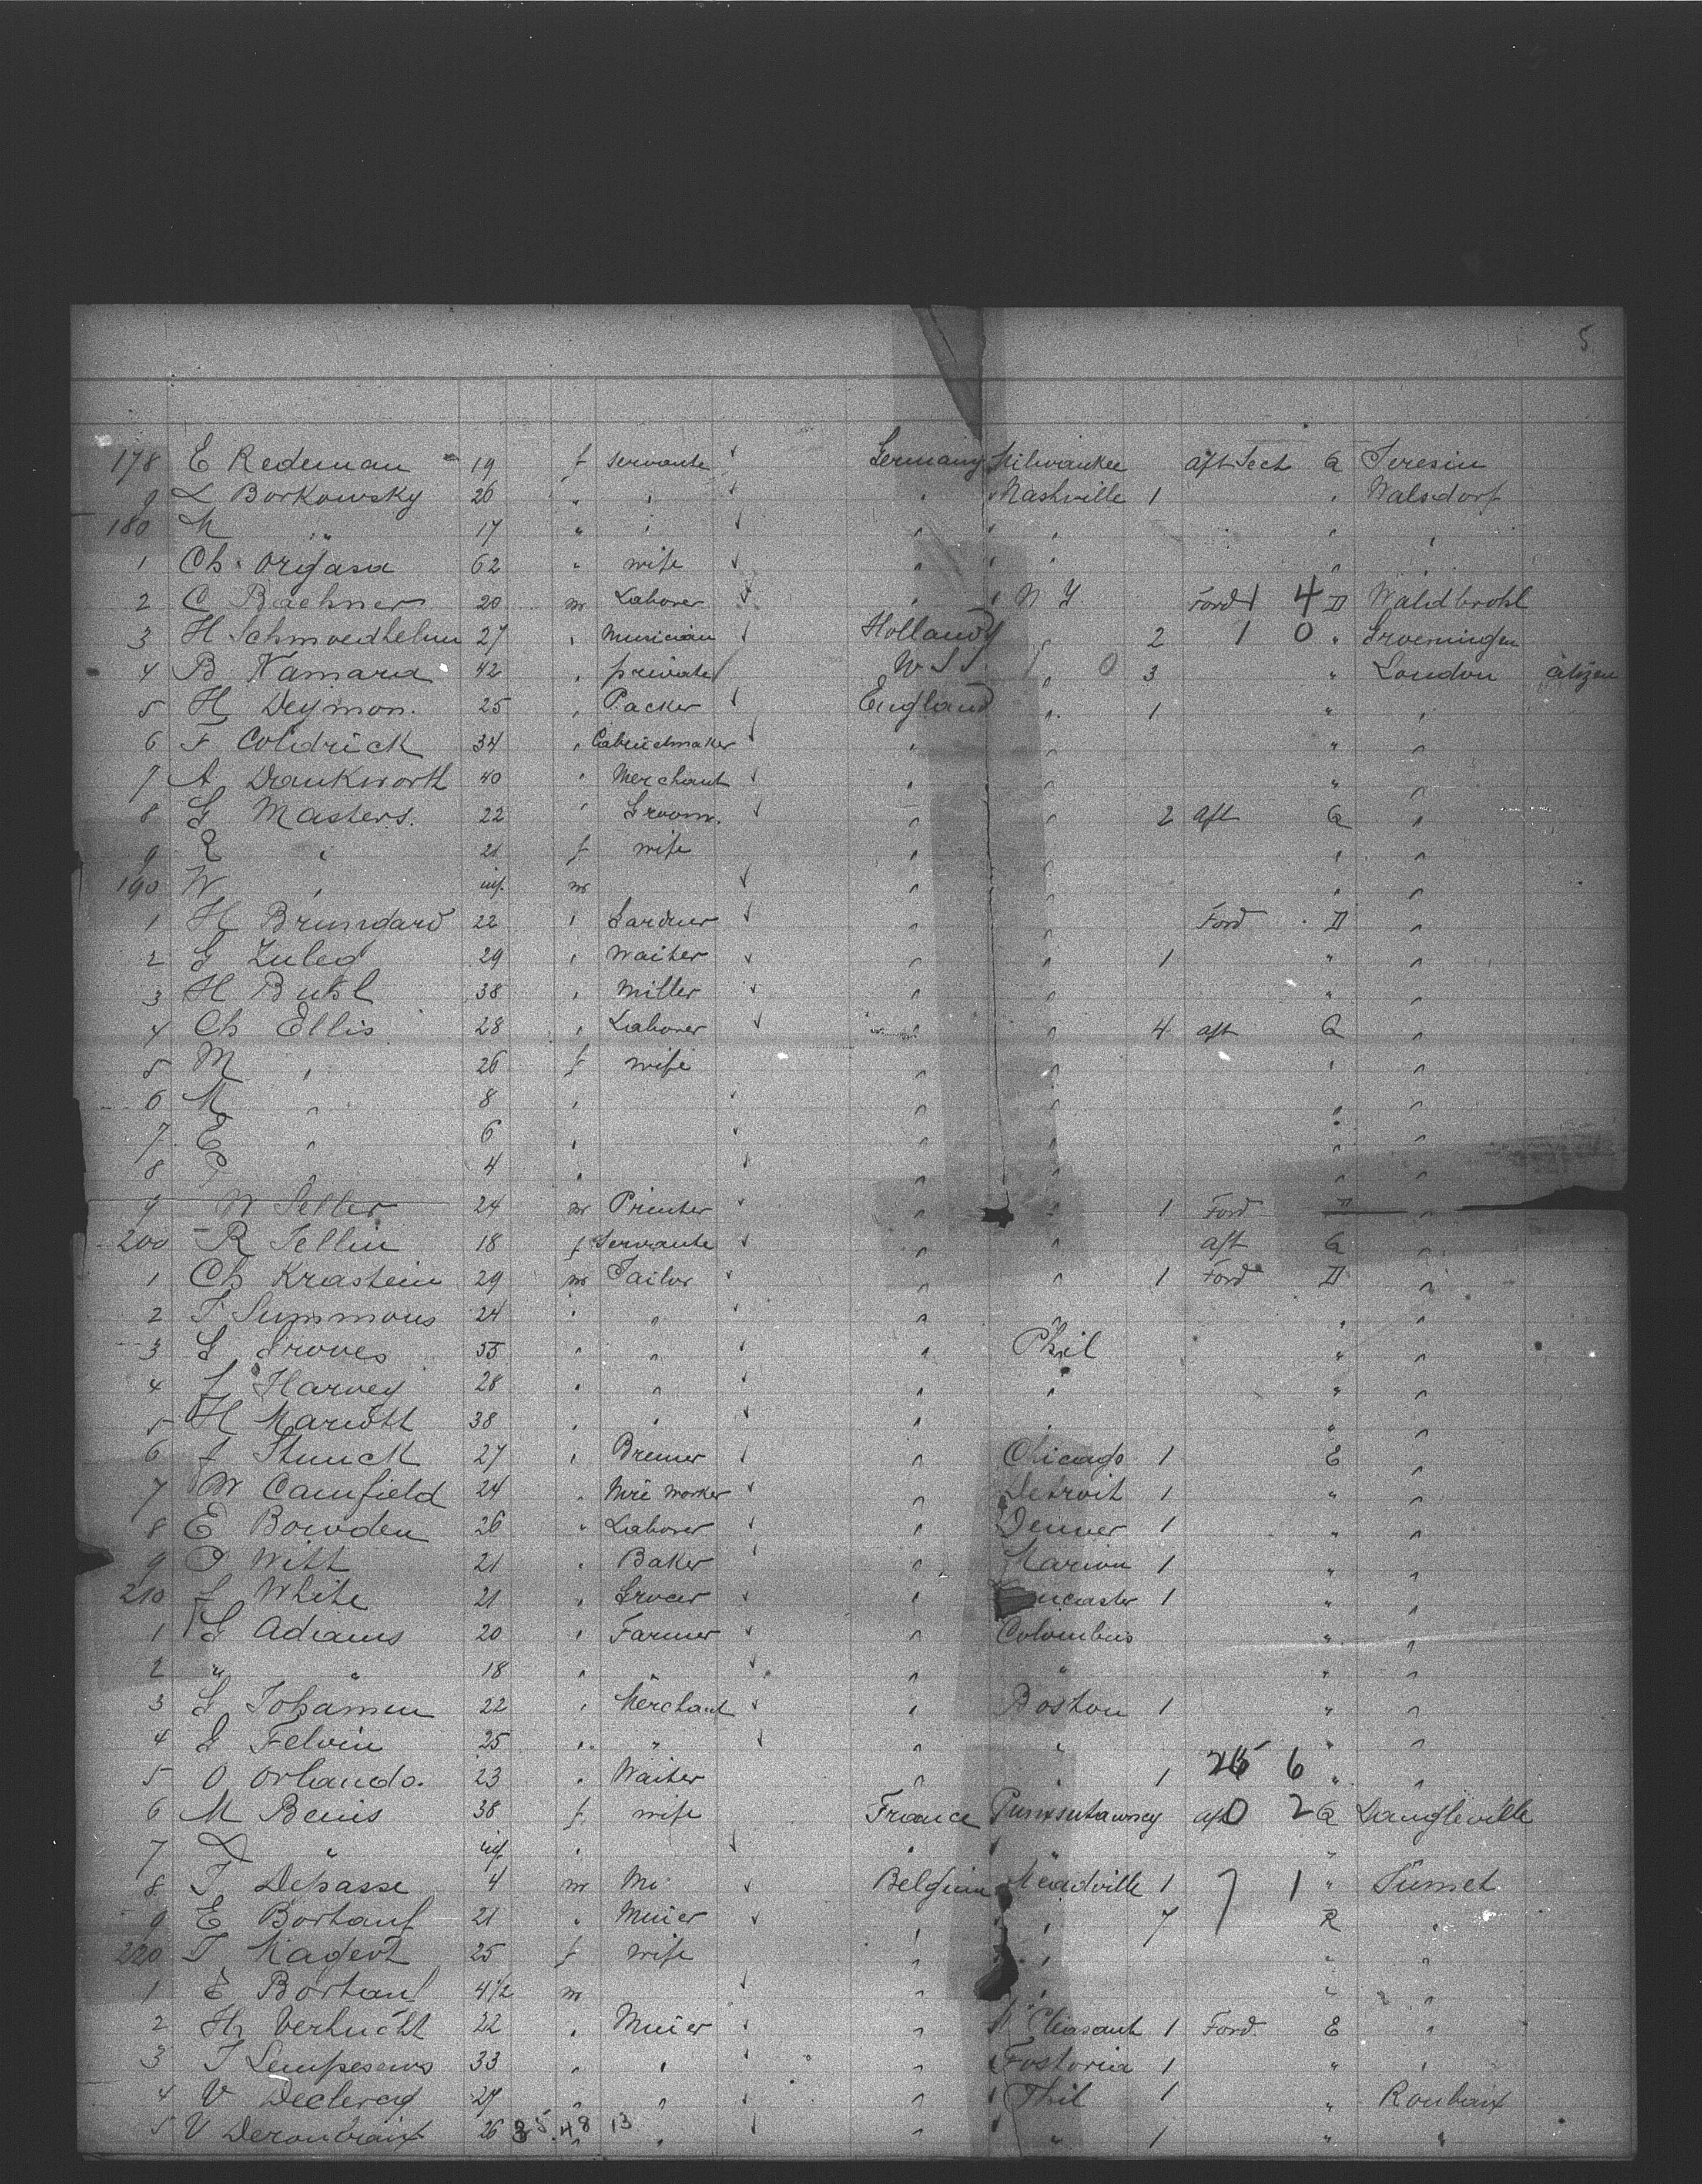 5
178 E Redeman 19 f servante Germany Milwaukee aft Sect Q Seresin
9 L Borkowsky 26 " " " Nashville 1 " Walsdorf
180 M " 17 " " " " " "
1 Ch. Origasa 62 " wife " " "
2 C Baehner 20 m Laborer " N Y Ford 1 4 D Waldbrohl
3 H Schmoedheline 27 " Musician Holland " 2 1 0 " Groeningen
4 B Namara 42 " private U S " 0 3 " London citizen
5 H Deymon. 25 " Packer England " 1 " "
6 F Coldrick 34 " Cabinetmaker " " " "
7 A Drankworth 40 " Merchant " " " "
8 G Masters. 22 " Groom. " " 2 aft Q "
9 R " 21 f wife " " " "
190 W " inf. m " " " "
1 H Brimgard 22 " Gardner " " Ford D "
2 G Zuled 29 " Waiter " " 1 " "
3 H Buhl 38 " Miller " " " "
4 Ch Ellis 28 " Laborer " " 4 aft Q "
5 M " 26 f wife " " " "
6 M " 8 " " " " "
7 E " 6 " " " " "
8 P " 4 " " " " "
9 W Seller 24 m Printer " " 1 Ford D "
200 R Tellin 18 f Servante " " aft Q "
1 Ch Krastein 29 m Tailor " " 1 Ford D "
2 F Summons 24 " " " " " "
3 G Groves 55 " " " Phil " "
4 J Harvey 28 " " " " " "
5 H Mariott 38 " " " " " "
6 J Stunck 27 " Brewer " Chicago 1 E "
7 W Camfield 24 " Wire worker " Detroit 1 " "
8 E Bowden 26 " Laborer " Denver 1 " "
9 P Witt 21 " Baker " Marion 1 " "
210 J White 21 " Grocer " ncaster 1 " "
1 G Adams 20 " Farmer " Colombus " "
2 " " 18 " " " " "
3 G Johannen 22 " Merchant " Boston 1 " "
4 G Felvin 25 " " " " " "
5 O Orlando. 23 " Waiter " " 1 26 6 " "
6 M Benis 38 f wife France Punxsutawney aft 0 2 Q Langleville
7 D " inf. " " " "
8 F Depasse 4 m Mi Belgium Meadville 1 7 1 " Jumet
9 E Bortauf 21 " Minier " " 7 R "
220 T Nagent 25 f wife " " " "
1 E Bortauf 4 1/2 m " " " "
2 Hr Verhucht 22 " Minier " Mt Pleasant 1 Ford. E "
3 T Lempesens 33 " " " Fostoria 1 " "
4 V Declercq 27 " " " Phil 1 " Roubaix
5 V Deroubaix 26 35 48 13 " " " " 1 " "